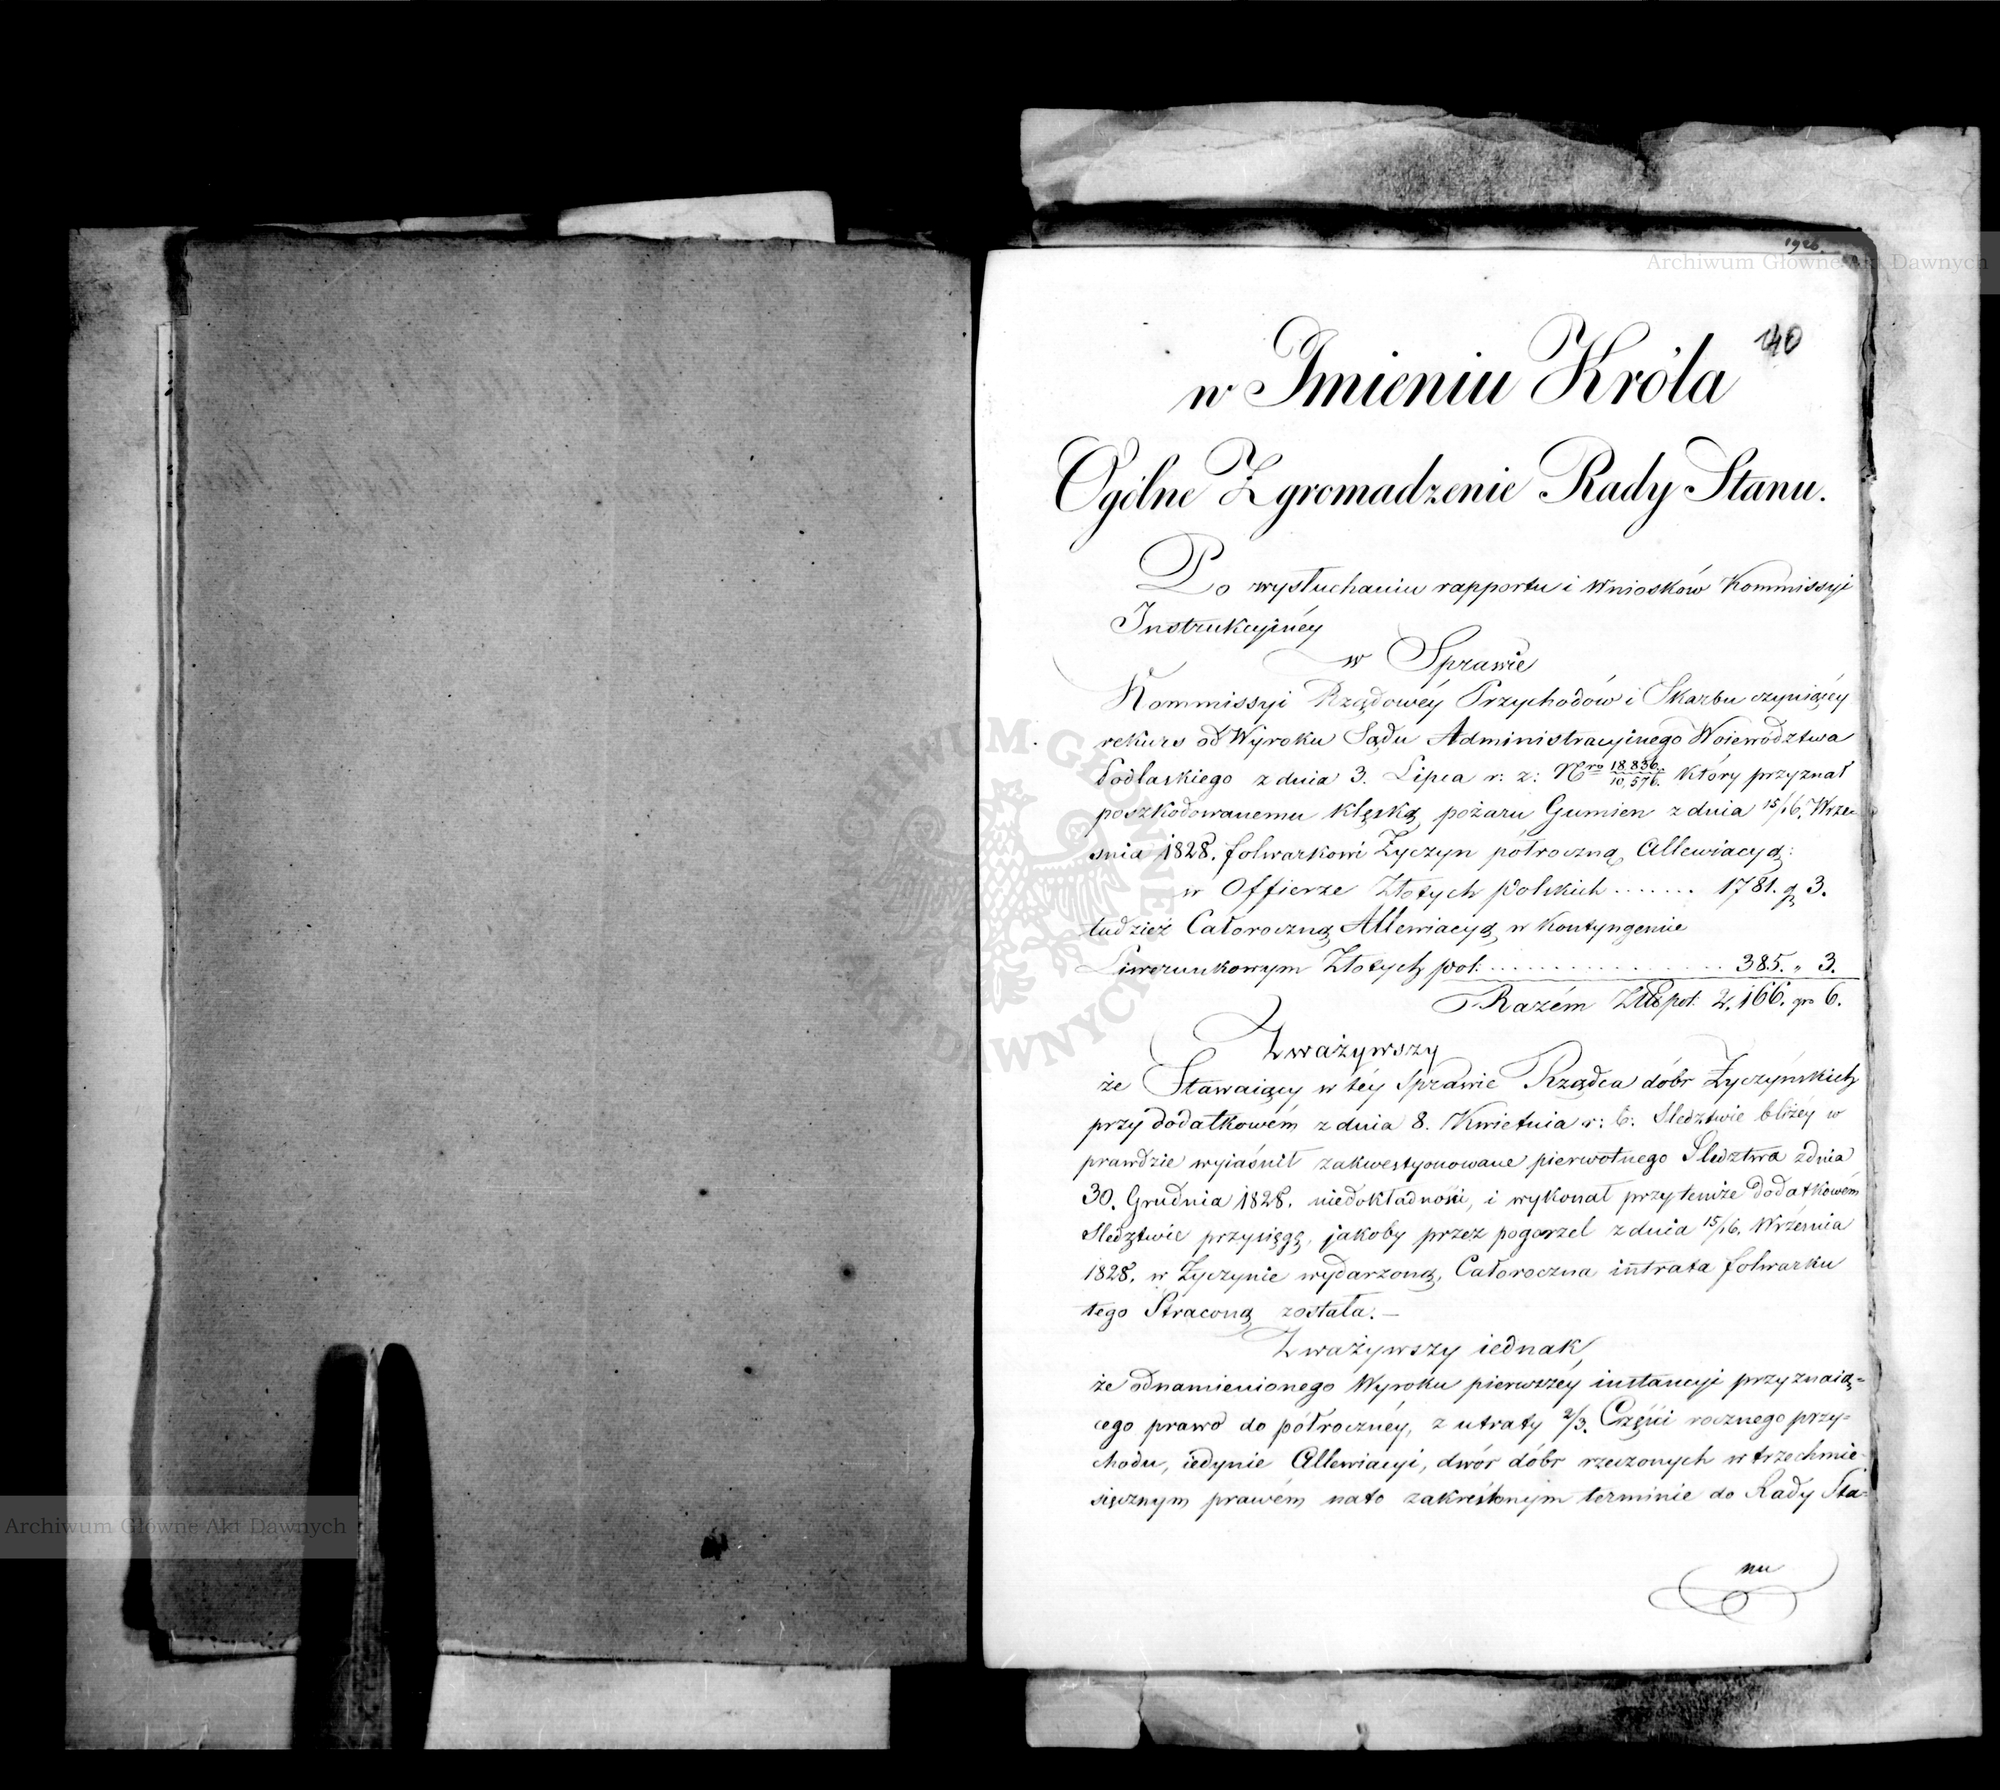 1926.
Archiwum Główne Akt Dawnych
140
w Imieniu Króla
Ogólne Zgromadzenie Rady Stanu.
Po wysłuchaniu rapportu i Wniosków Kommissyi
Instrukcyinéy
w Sprawie
Kommissyi Rządowéy Przychodów i Skarbu czyniącéy
rekurs od Wyroku Sądu Administracyinego Woiewództwa
Podlaskiego z dnia 3. Lipca r: z: Nro 18,836./10,576. który przyznał
poszkodowanemu klęską pożaru Gumien z dnia 15/16. Wrze-
snia 1828. folwarkowi Życzyn półroczną Allewiacyą:
w Offierze Złotych Polskich ....... 1781. g 3.
tudzież Całoroczną Allewiacyą w Kontyngensie
Liwerunkowym Złotych pol: .................. 385. „ 3.
Razém Złł pol: 2,166. gro 6.
Zważywszy
że Stawaiący w téy Sprawie Rządca dóbr Życzyńskich
przy dodatkowém z dnia 8. Kwietnia r: b: Sledztwie bliżéy w
prawdzie wyiaśnił zakwestyonowane pierwotnego Sledztwa z dnia
30. Grudnia 1828. niedokładności, i wykonał przy temże dodatkowém
Sledztwie przysięgę, jakoby przez pogorzel z dnia 15/16. Września
1828. w Życzynie wydarzoną, Całoroczna intrata folwarku
tego Straconą została. —
Zważywszy iednak
że odnamienionego Wyroku pierwszéy instancyi przyznaią=
cego prawo do półrocznéy, z utraty 2/3. Części rocznego przy=
chodu, iedynie Allewiacyi, dwór dóbr rzeczonych w trzechmie-
sięcznym prawém nato zakreślonym terminie do Rady Sta=
nu
ARCHIWUM GŁÓWNE AKT DAWNYCH
Archiwum Główne Akt Dawnych